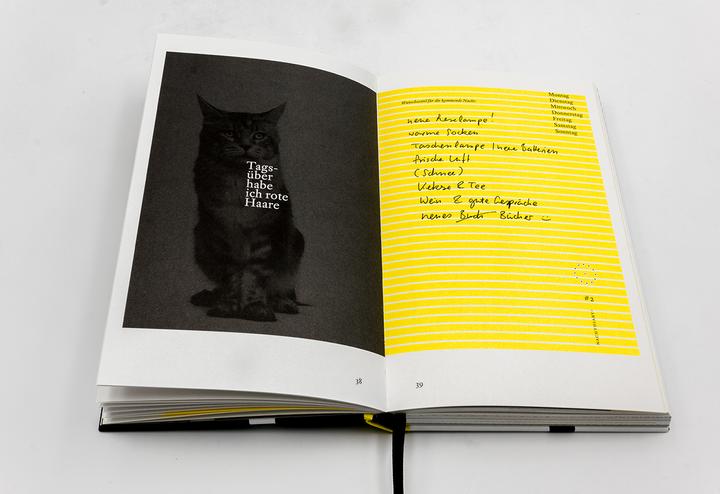 Tags-
über
habe
ich rote
Haare
38
Wunschzettel für die kommende Nacht:
Montag
Dienstag
Mittwoch
Donnerstag
Freitag
Samstag
Sonntag
neue Leselampe!
warme Socken
Taschenlampe / neue Batterien
frische Luft
(Schnee)
Kekse & Tee
Wein & gute Gespräche
neues Buch Bücher ☺
#2
39